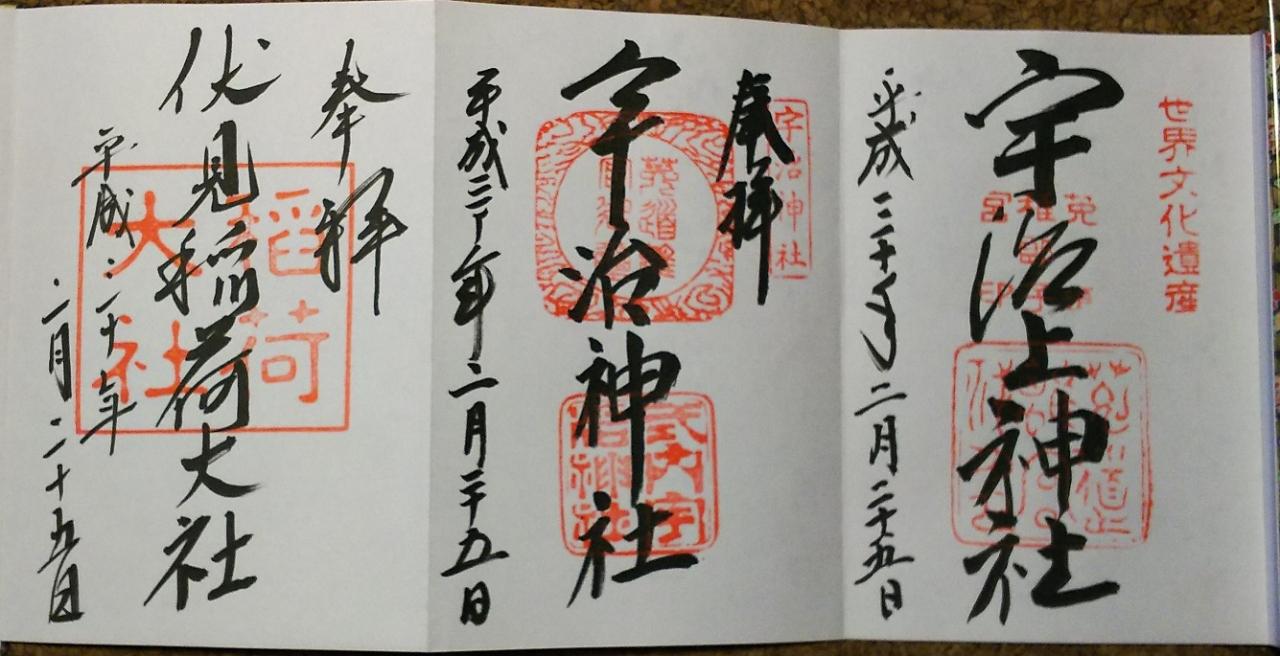 世界文化遺産
宇治上神社
平成三十年二月二十五日
宇治神社
奉拝
宇治神社
式内宇
治神社
平成三十年二月二十五日
奉拝
伏見稲荷大社
稲荷
大社
平成三十年
二月二十五日